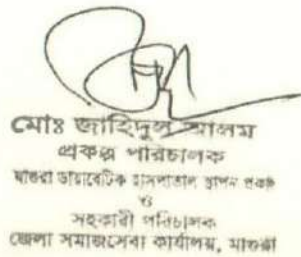 মোঃ জাহিদুল আলম
প্রকল্প পরিচালক
মাগুরা ডায়াবেটিক হাসপাতাল স্থাপন প্রকল্প
ও
সহকারী পরিচালক
জেলা সমাজসেবা কার্যালয়, মাগুরা